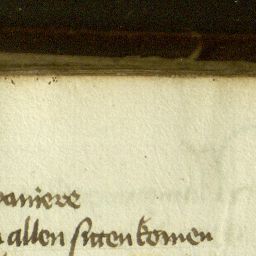 baniere
allen sitten komen